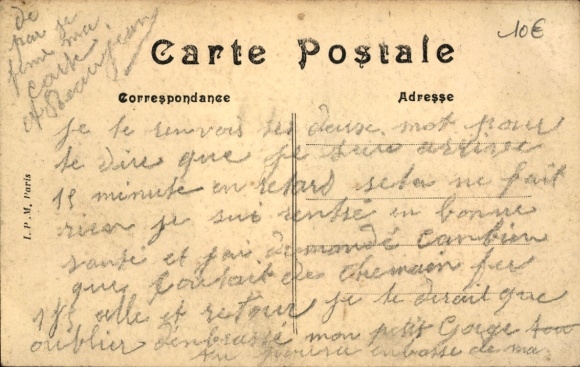 de
par je
firme ma
carte
Beaujean
10€
Carte Postale
Correspondance
Adresse
I. P. M. Paris
je te renvois ses deux mot pour
te dire que je sui arrivée
15 minute en retard sela ne fait
rien je sui rentré en bonne
santé et j'ai demandé combien
que coutait de chemain fer
175 alle et retour je te dirait que
oublier d'enbrassé mon petit Gorge